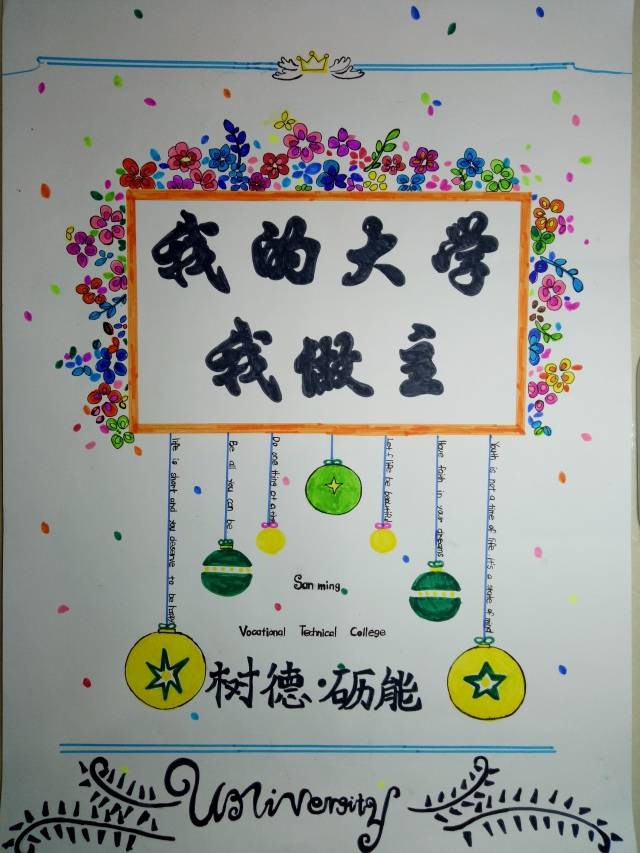 我的大学
我做主
life is short and you deserve to be happy
Be all you can be
Do one thing at a time
Let life be beautiful
Have faith in your dreams
Youth is not a time of life it's a state of mind
San ming
Vocational Technical College
树德·砺能
University